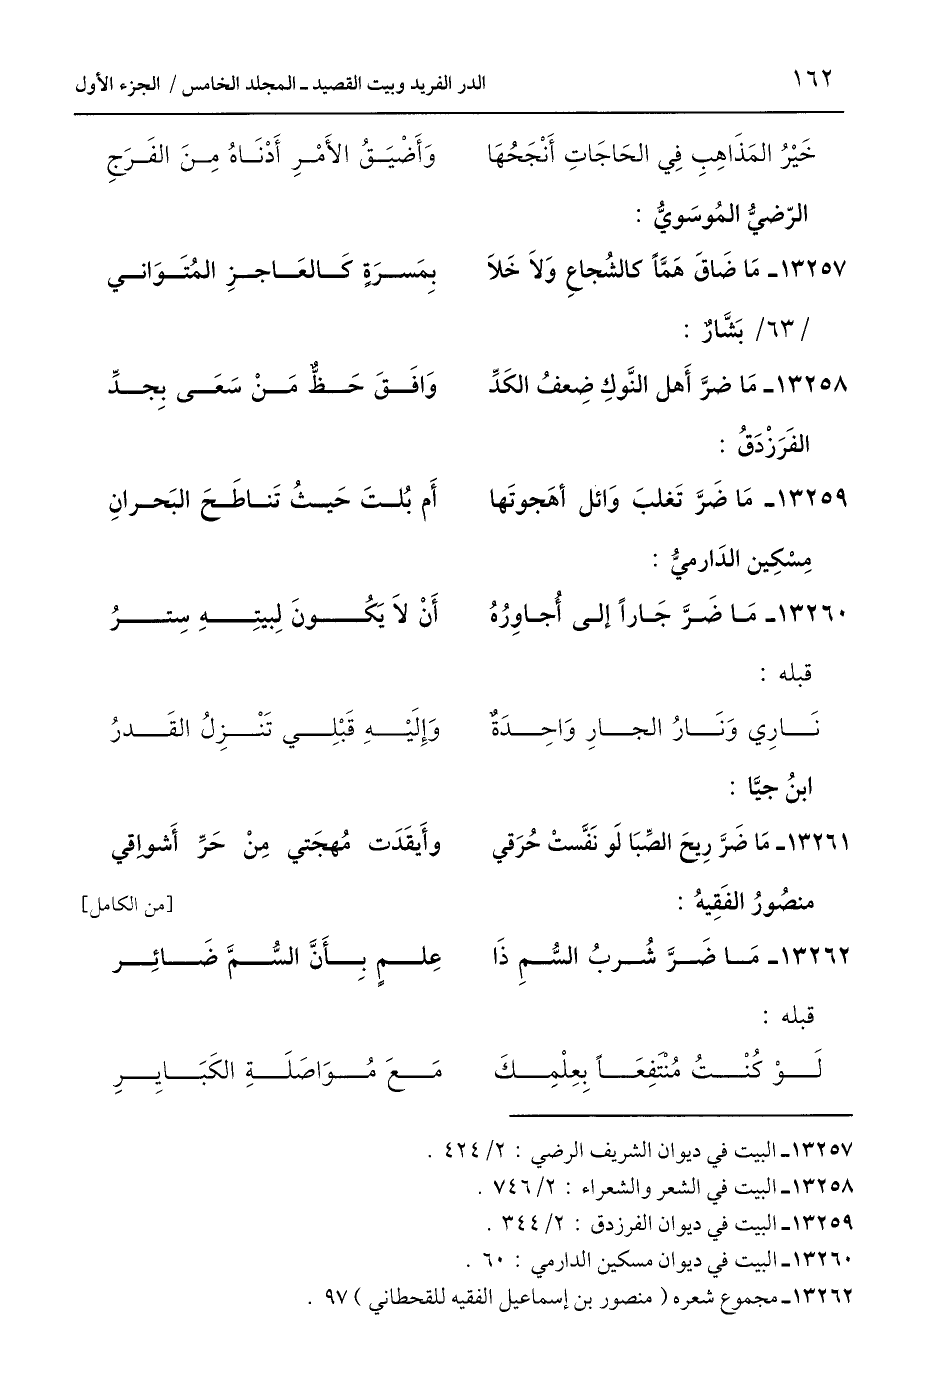 ١٦٢ الدر الفريد وبيت القصيد ـ المجلد الخامس / الجزء الأول
خَيْرُ المَذَاهِبِ فِي الحَاجَاتِ أَنْجَحُهَا وَأَضْيَقُ الأَمْرِ أَدْنَاهُ مِنَ الفَرَجِ
الرّضيُّ المُوسَوِيُّ :
١٣٢٥٧ـ مَا ضَاقَ هَمَّاً كالشُجاعِ وَلاَ خَلاَ بِمَسرَةٍ كَالعَاجزِ المُتَوَانـي
/ ٦٣/ بَشَّارٌ :
١٣٢٥٨ـ مَا ضرَّ أَهل النَّوكِ ضِعفُ الكَدِّ وَافَقَ حَظٌّ مَنْ سَعَى بِجدِّ
الفَرَزْدَقُ :
١٣٢٥٩ـ مَا ضَرَّ تَغلبَ وَائل أهَجوتَها أَم بُلتَ حَيثُ تَناطَحَ البَحرانِ
مِسْكِين الدَارميُّ :
١٣٢٦٠ـ مَا ضَرَّ جَاراً إلى أُجاورُهُ أَنْ لاَ يَكُونَ لِبيتِهِ سِترُ
قبله :
نَارِي وَنَارُ الجارِ وَاحِدَةٌ وَإِلَيْهِ قَبْلِي تَنْزِلُ القَدرُ
ابنُ حيَّا :
١٣٢٦١ـ مَا ضَرَّ رِيحَ الصِّبَا لَو نَفَّستْ حُرَقي وأَيقَدَت مُهجَتي مِنْ حَرِّ أَشواقي
منصُورُ الفَقِيهُ : [من الكامل]
١٣٢٦٢ـ مَا ضَرَّ شُربُ السُمِ ذَا عِلمٍ بِأَنَّ السُمَّ ضَائِر
قبله :
لَوْ كُنْتُ مُنْتَفِعَاً بِعِلْمِكَ مَعَ مُوَاصَلَةِ الكَبَايِرِ
١٣٢٥٧ـ البيت في ديوان الشريف الرضي : ٢/ ٤٢٤ .
١٣٢٥٨ـ البيت في الشعر والشعراء : ٢/ ٧٤٦ .
١٣٢٥٩ـ البيت في ديوان الفرزدق : ٢/ ٣٤٤ .
١٣٢٦٠ـ البيت في ديوان مسكين الدارمي : ٦٠ .
١٣٢٦٢ـ مجموع شعره ( منصور بن إسماعيل الفقيه للقحطاني ) ٩٧ .